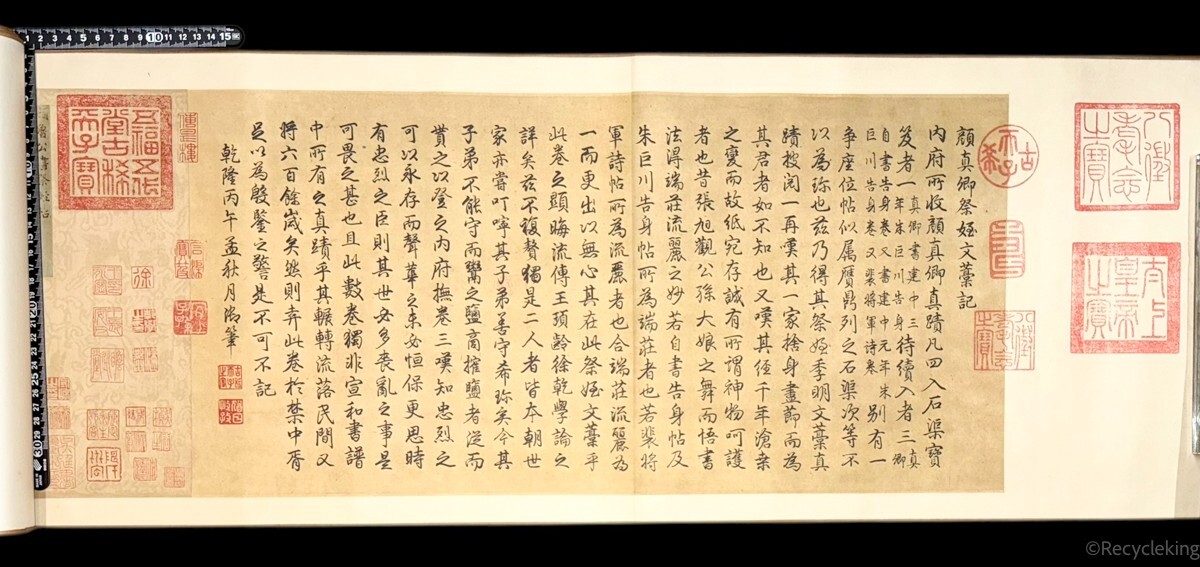 八徵耄念之寶
太上皇帝之寶
古希天子
壽
八徵耄念之寶
顏真卿祭姪文藁記
內府所收顏真卿真蹟凡四入石渠寶
笈者一真卿書建中三待續入者三真卿
年朱巨川告身
自書告身卷又書建中元年朱
巨川告身卷又裴將軍詩卷
別有一
爭座位帖似属贋鼎列之石渠次等不
以為珎也茲乃得其祭姪季明文藁真
蹟披閱一再嘆其一家捨身盡節而為
其君者如不知也又嘆其經千年滄桑
之變而故紙宛存誠有所謂神物呵護
者也昔張旭觀公孫大娘之舞而悟書
法得端莊流麗之妙若自書告身帖及
朱巨川告身帖所為端莊者也若裴將
軍詩帖所為流麗者也合端莊流麗為
一而更出以無心其在此祭姪文藁乎
此卷之頭晦流傳王頊齡徐乾學論之
詳矣茲不複贅獨是二人者皆本朝世
家亦嘗叮嚀其子弟善守希珎矣今其
子弟不能守而鬻之鹽商攉鹽者從而
貰之以登之內府撫卷三嘆知忠烈之
可以永存而聲華之未必恒保更思時
有忠烈之臣則其世必多喪亂之事是
可畏之甚也且此數卷獨非宣和書譜
中所有之真蹟乎其輾轉流落民間又
將六百餘歲矣然則弆此卷於禁中胥
足以為殷鑒之警是不可不記
乾隆丙午孟秋月御筆
五福五代堂古稀天子寶
徐